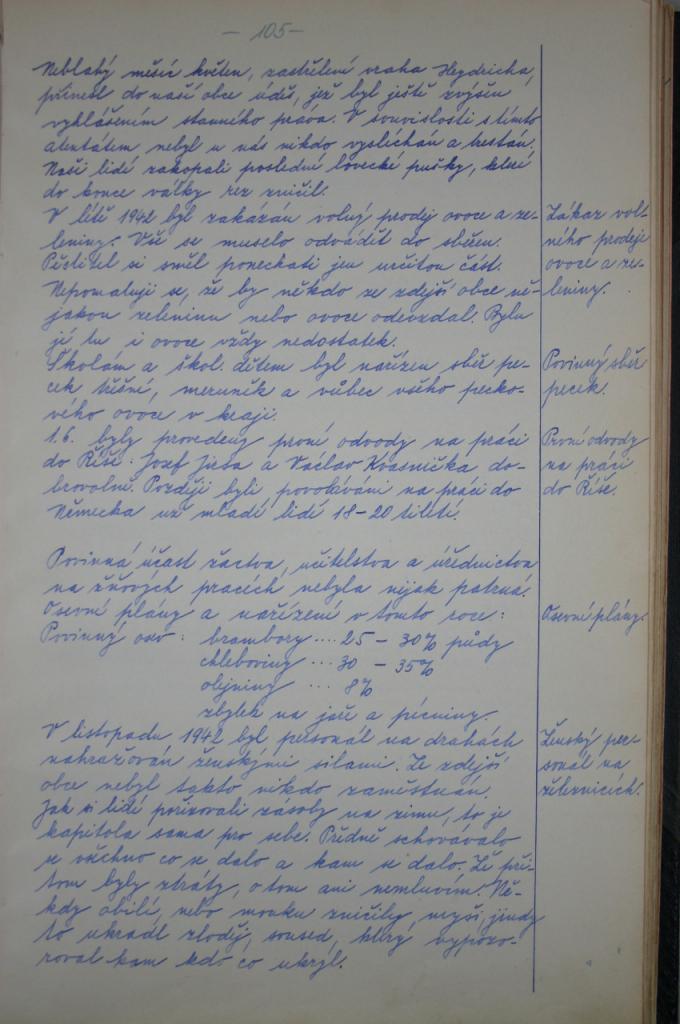 - 105 -
Neblahý měsíc květen, zastřelení vraha Heydricha,
přinesl do naší obce úděs, jež byl ještě zvýšen
vyhlášením stanného práva. V souvislosti s tímto
atentátem nebyl u nás nikdo vyslýchán a trestán.
Naši lidé zakopali poslední lovecké pušky, které
do konce války rez zničil.
V létě 1942 byl zakázán volný prodej ovoce a ze-
leniny. Vše se muselo odvádět do sběren.
Pěstitel si směl ponechati jen určitou část.
Nepamatuji se, že by někdo ze zdejší obce ně-
jakou zeleninu nebo ovoce odevzdal. Bylo
jí tu i ovoce vždy nedostatek.
Zákaz vol-
ného prodeje
ovoce a ze-
leniny.
Školám a škol. dětem byl nařízen sběr pe-
cek třešní, meruněk a vůbec všeho pecko-
vého ovoce v kraji.
Povinný sběr
pecek.
1.6. byly provedeny první odvody na práci
do Říše: Josef Jirsa a Václav Kvasnička do-
brovolně. Později byli povoláváni na práci do
Německa už mladí lidé 18-20 tiletí.
První odvody
na práci
do Říše.
Povinná účast žactva, učitelstva a úřednictva
na žňových pracích nebyla nijak patrná.
Osevní plány a nařízení v tomto roce:
Osevní plány.
Povinný osev: brambory .... 25 - 30% půdy
chleboviny ... 30 - 35%
olejniny ... 8%
zbytek na jaře a pícniny.
V listopadu 1942 byl personál na drahách
nahražován ženskými silami. Ze zdejší
obce nebyl takto nikdo zaměstnán.
Ženský per-
sonál na
železnicích.
Jak si lidé pořizovali zásoby na zimu, to je
kapitola sama pro sebe. Předně schovávalo
se všechno co se dalo a kam se dalo. Že při-
tom byly ztráty, o tom ani nemluvím. Ně-
kdy obilí, nebo mouku zničily myši, jindy
to ukradl zloděj, soused, který vypozo-
roval kam kdo co ukryl.